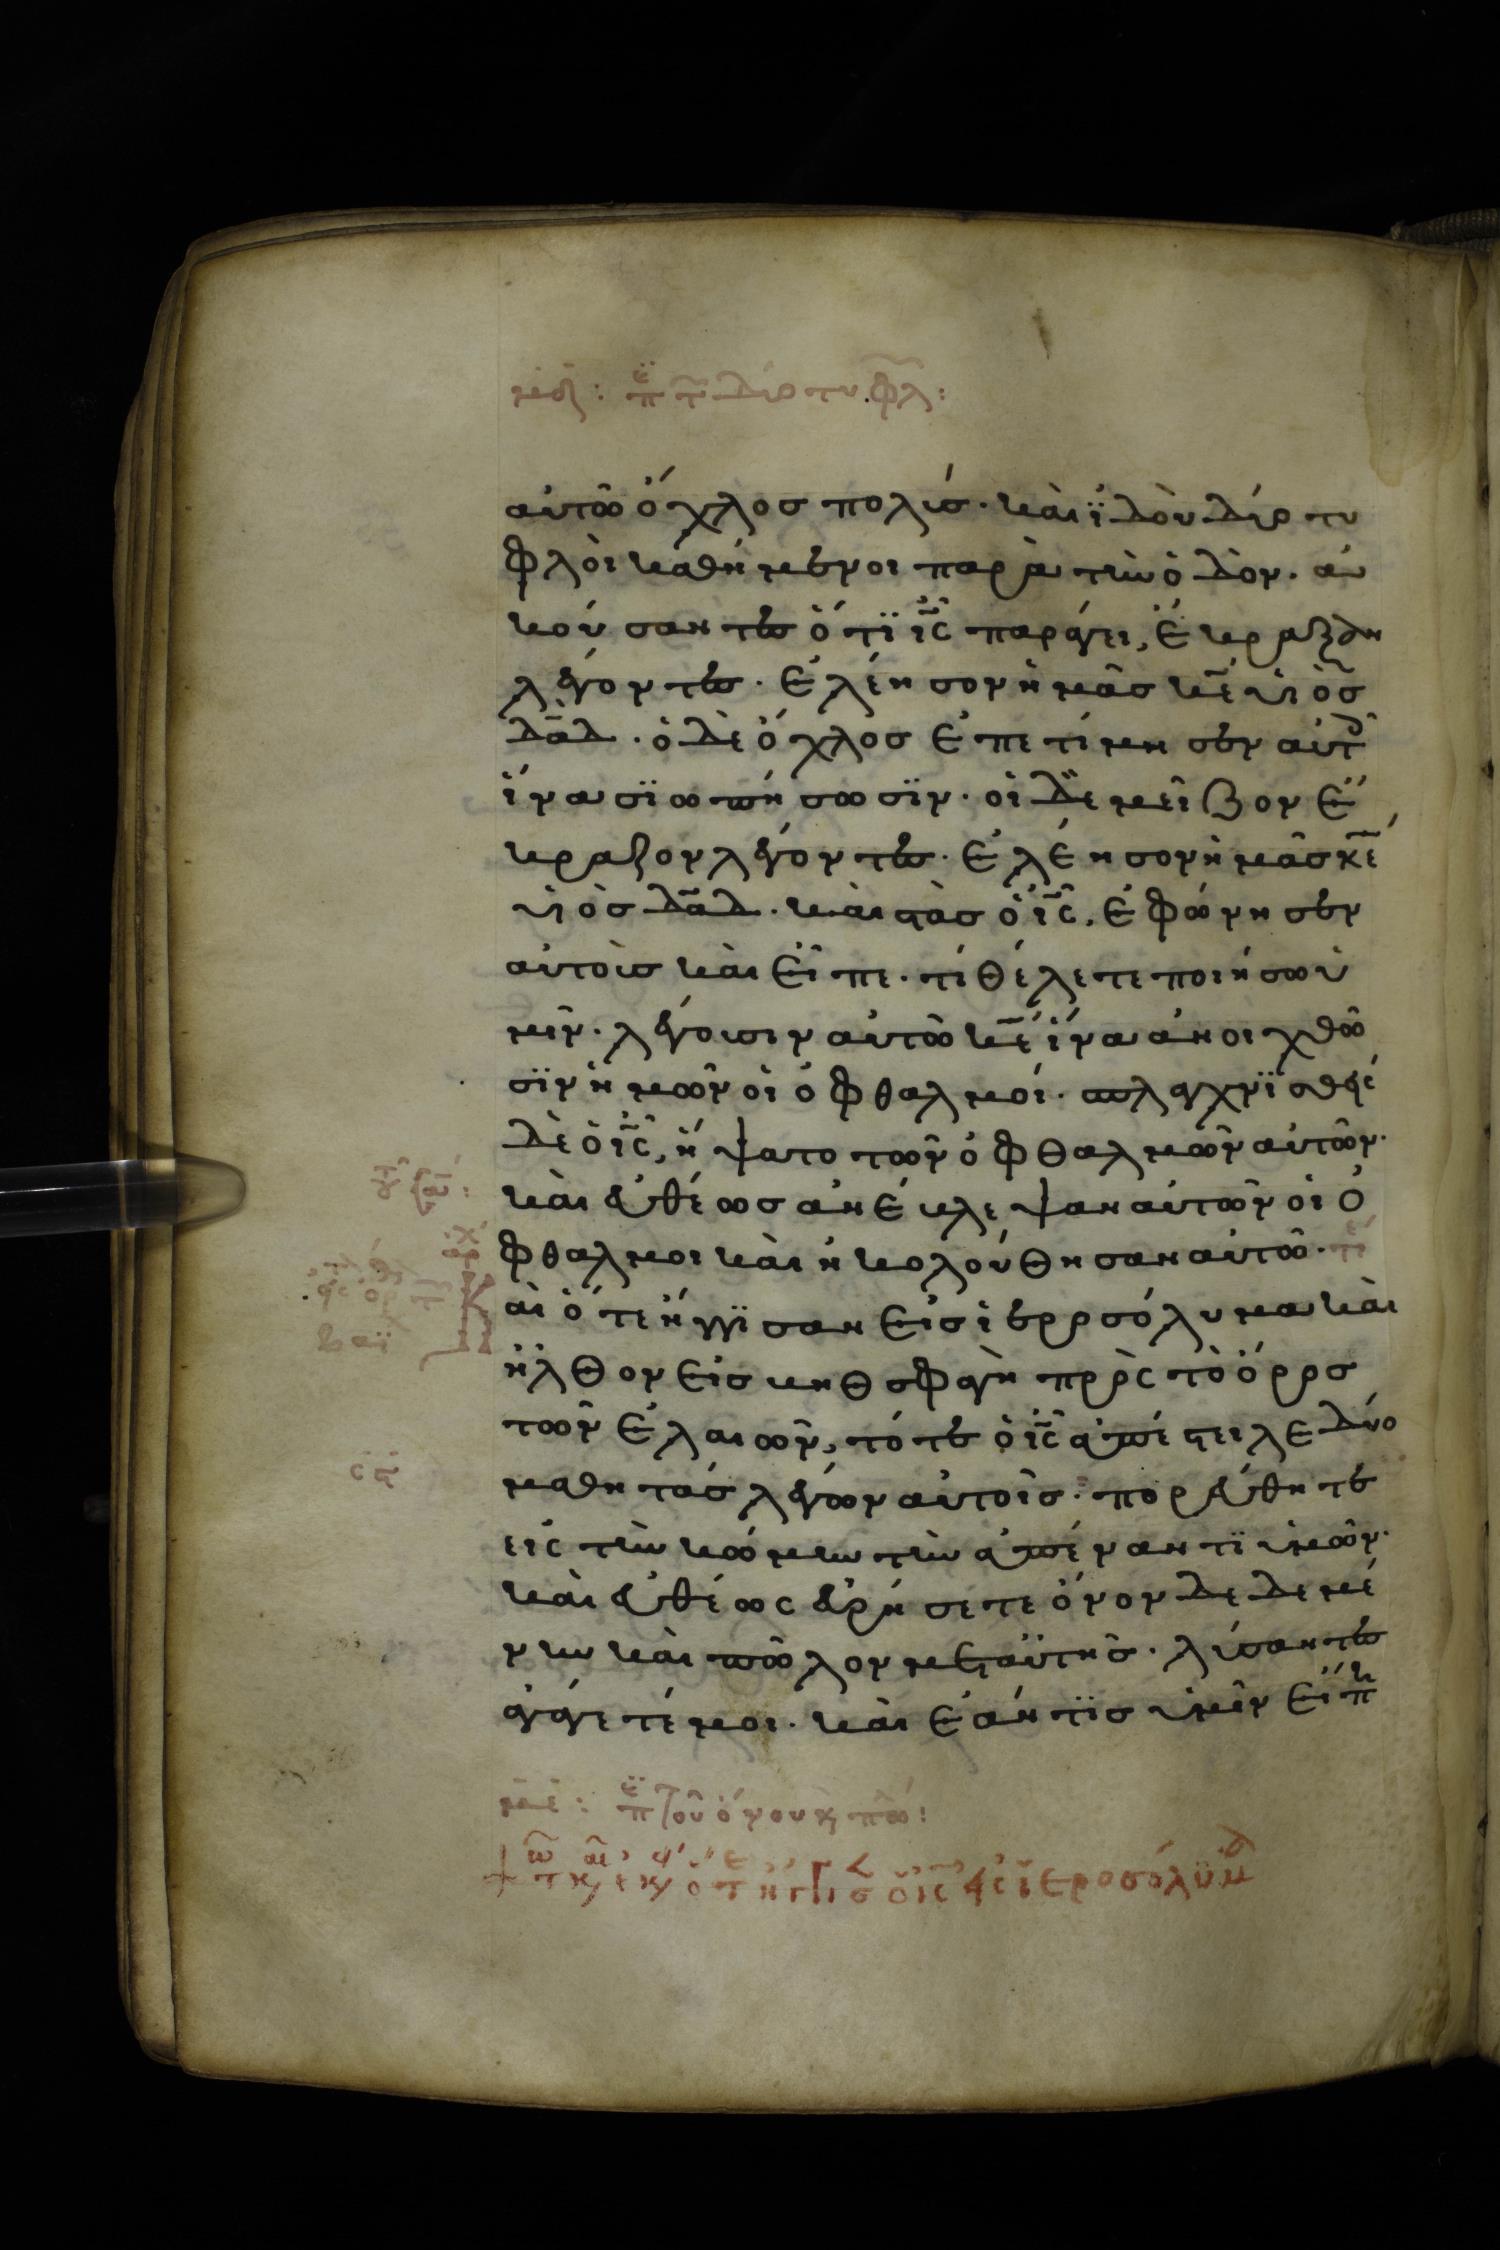 αὐτῶ ὄχλος πολύς· καὶ ϊδοὺ δύο τυ
φλοὶ καθήμενοι παρὰ τὴν ὁδόν· ἀ
κούσαντες ὅτϊ ι̅ς̅ παράγει, ἔκραξαν
λέγοντες· ἐλέησον ἡμᾶς κ̅ε̅ υἱὸς
δ̅α̅δ̅· ὁ δὲ ὄχλος ἐπετίμησεν αὐτ
ἵνα σϊωπήσωσϊν· οἱ δὲ μεῖζον ἔ
κραζον λέγοντες· ἐλέησον ἡμᾶς κ̅ε̅
υἱὸς δ̅α̅δ̅· καὶ στὰς ὁ ι̅ς̅, ἐφώνησεν
αὐτοὺς καὶ εἶπε· τί θέλετε ποιήσω ὑ
μῖν· λέγουσιν αὐτῶ κ̅ε̅ ἵνα ἀνοιχθῶ
σϊν ἡμῶν οἱ ὀφθαλμοί· σπλαγχνϊσθεὶς
δὲ ὁ ι̅ς̅, ἥψατο τῶν ὀφθαλμῶν αὐτῶν·
καὶ εὐθέως ἀνέβλεψαν αὐτῶν οἱ ὀ
φθαλμοι καὶ ἠκολούθησαν αὐτῶ·
Καὶ ὅτε ἤγγϊσαν εἰς ἱεροσόλυμα καὶ
ἦλθον εἰς βηθσφαγὴ πρὸς τὸ ὄρος
τῶν ἐλαιῶν, τότε ὁ ι̅ς̅ ἀπέστειλε δύο
μαθητάς λέγων αὐτοῖς· πορεύθητε
εἰς τὴν κώμην τὴν ἀπέναντϊ ὑμῶν·
καὶ εὐθέως εὑρήσετε ὄνον δεδεμέ
νην καὶ πῶλον μετ αὐτῆς· λύσαντες
ἀγάγετέ μοι· καὶ ἐάν τϊς ὑμῖν εἴπη